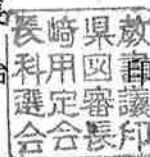 長崎県教
科用図書
選定審議
会会長印
印